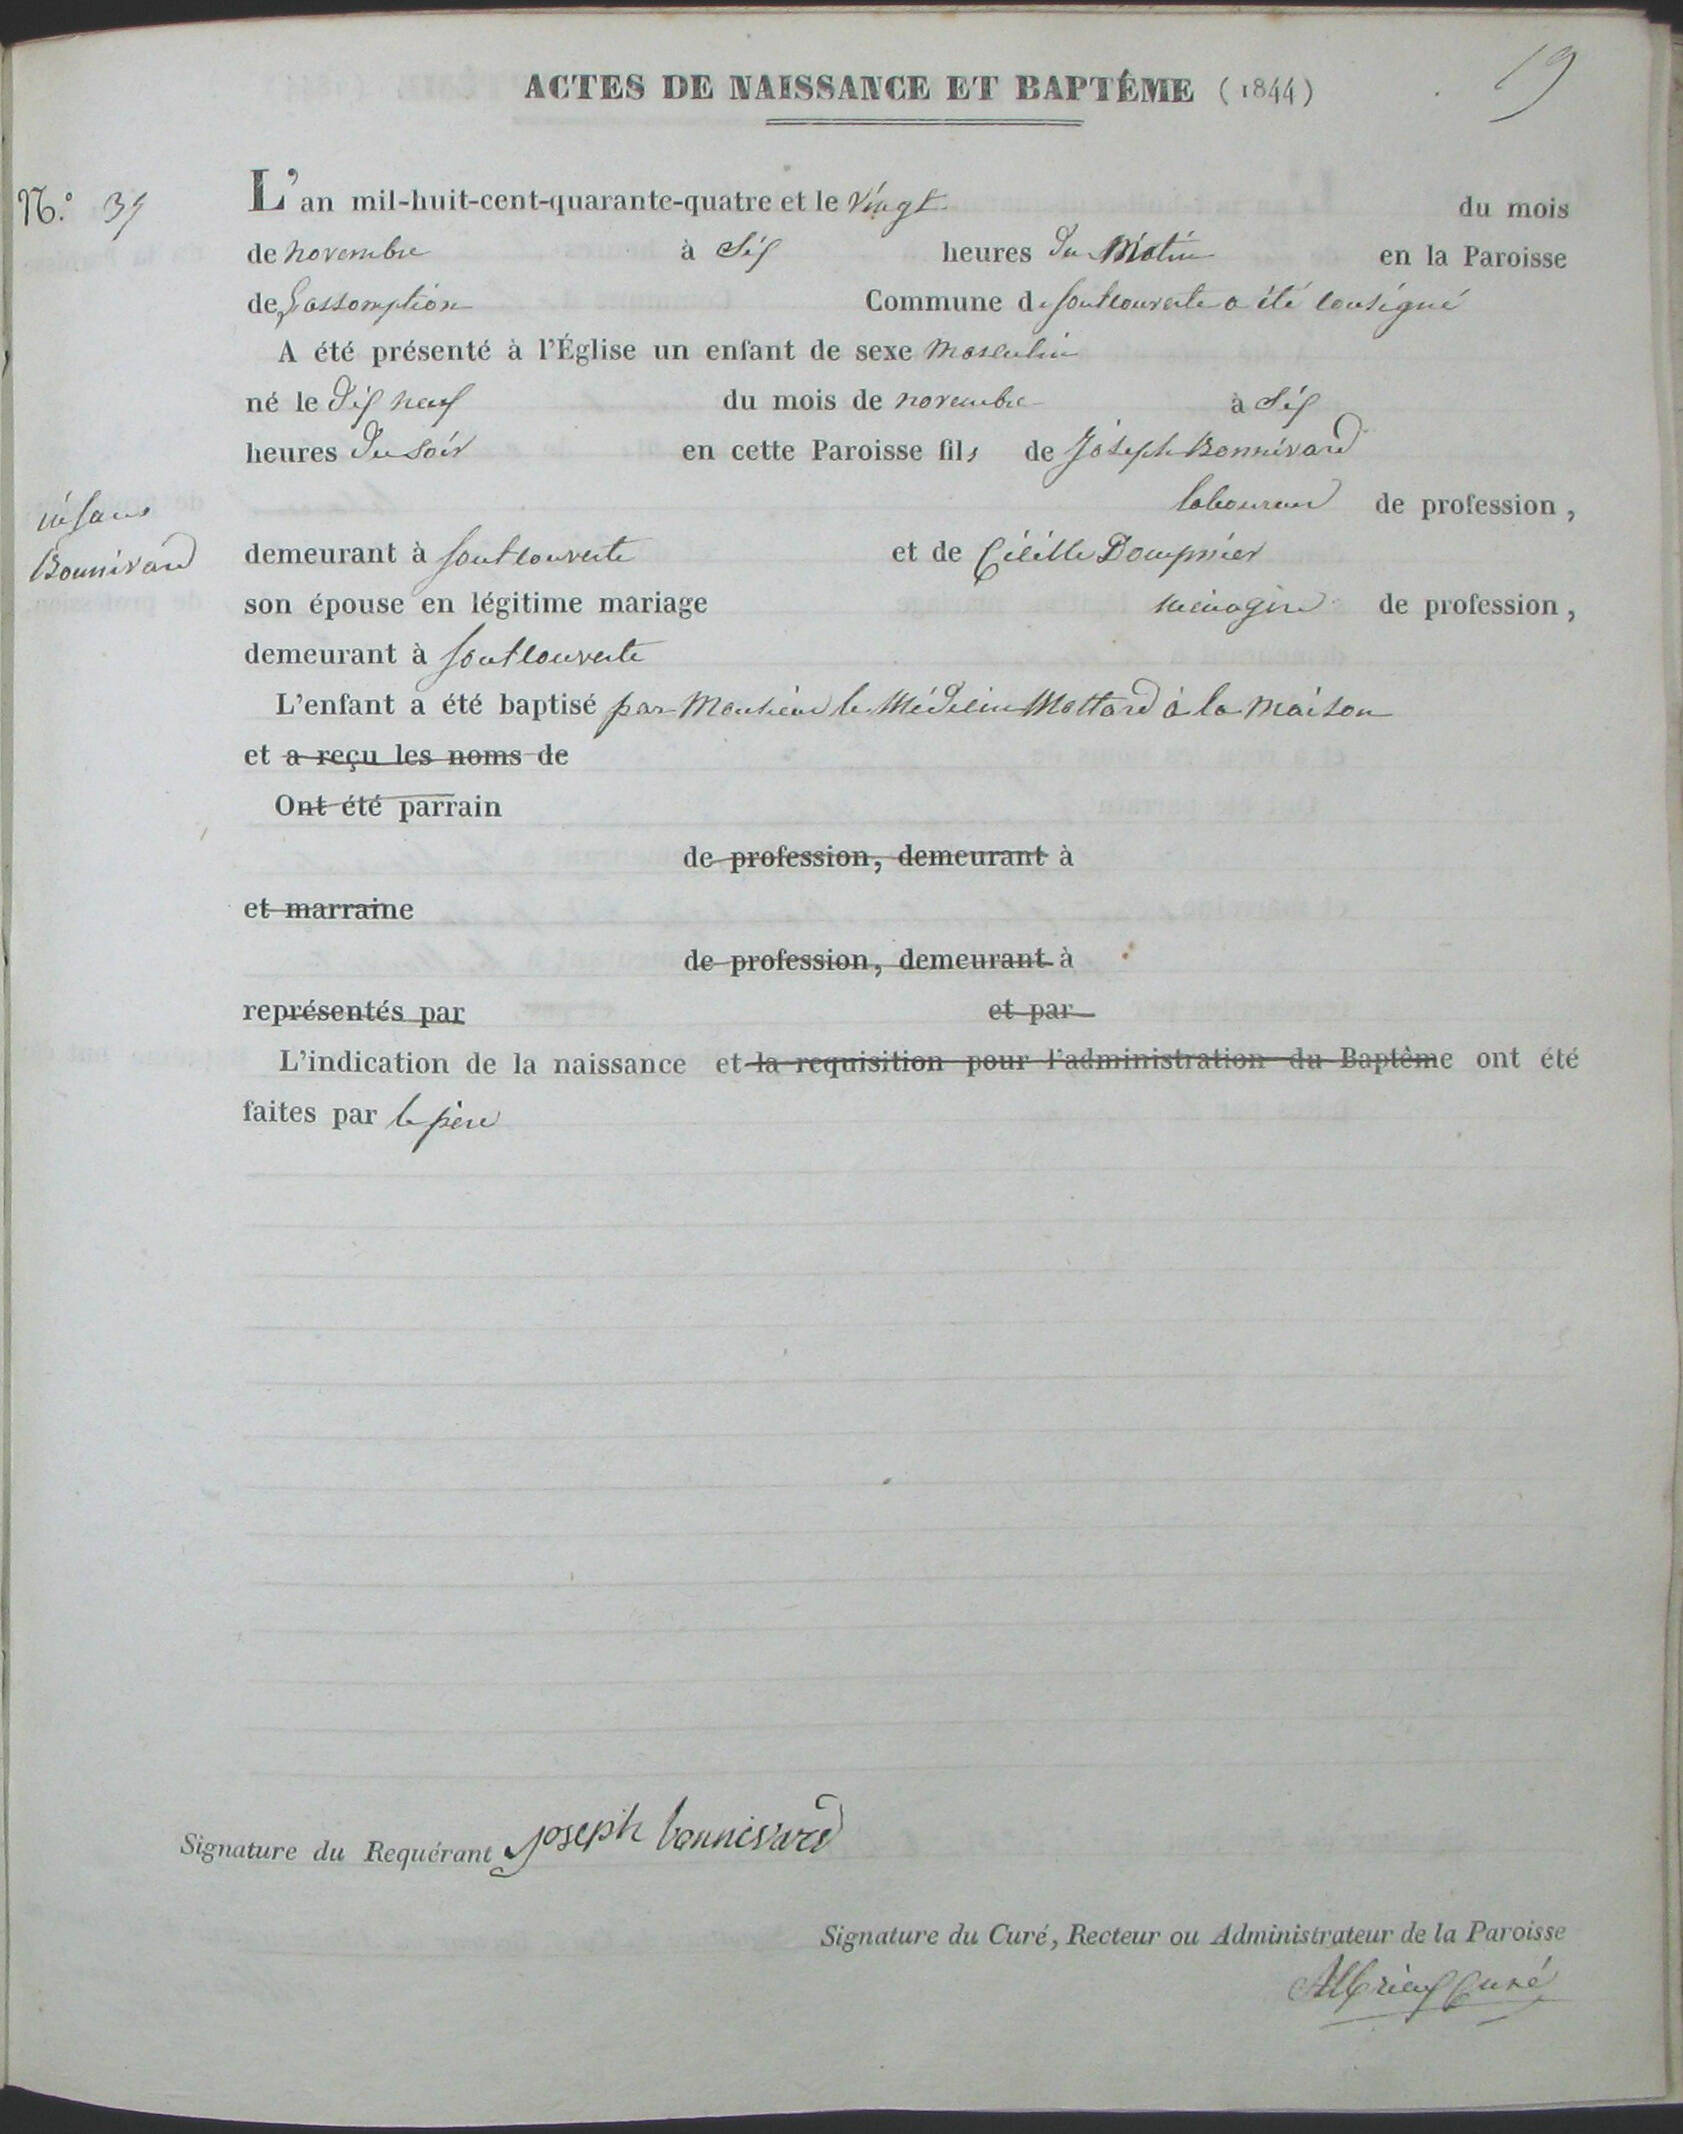 ACTES DE NAISSANCE ET BAPTÊME (1844)
19
N.° 37
L'an mil-huit-cent-quarante-quatre et le vingt du mois
de novembre à Six heures du Matin en la Paroisse
de L'assomption Commune de fontcouverte a été consigné
A été présenté à l'Église un enfant de sexe Masculin
né le dix neuf du mois de novembre à Six
heures du soir en cette Paroisse fils de Joseph Bonnivard
laboureur de profession,
infans
Bonnivard
demeurant à fontcouverte et de Cécille Dompnier
son épouse en légitime mariage ménagère de profession,
demeurant à fontcouverte
L'enfant a été baptisé par Monsieur le Médecin Mottard à la Maison
et a reçu les noms de
Ont été parrain
de profession, demeurant à
et marraine
de profession, demeurant à
représentés par et par
L'indication de la naissance et la requisition pour l'administration du Baptême ont été
faites par le père
Signature du Requérant joseph bonnivard
Signature du Curé, Recteur ou Administrateur de la Paroisse
Albrieux Curé